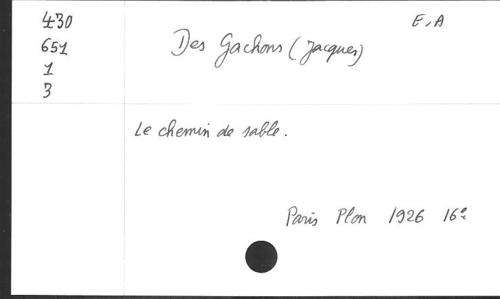 430
E, A
651
Des Gachons (Jacques)
1
3
Le chemin de sable.
Paris Plon 1926 16°